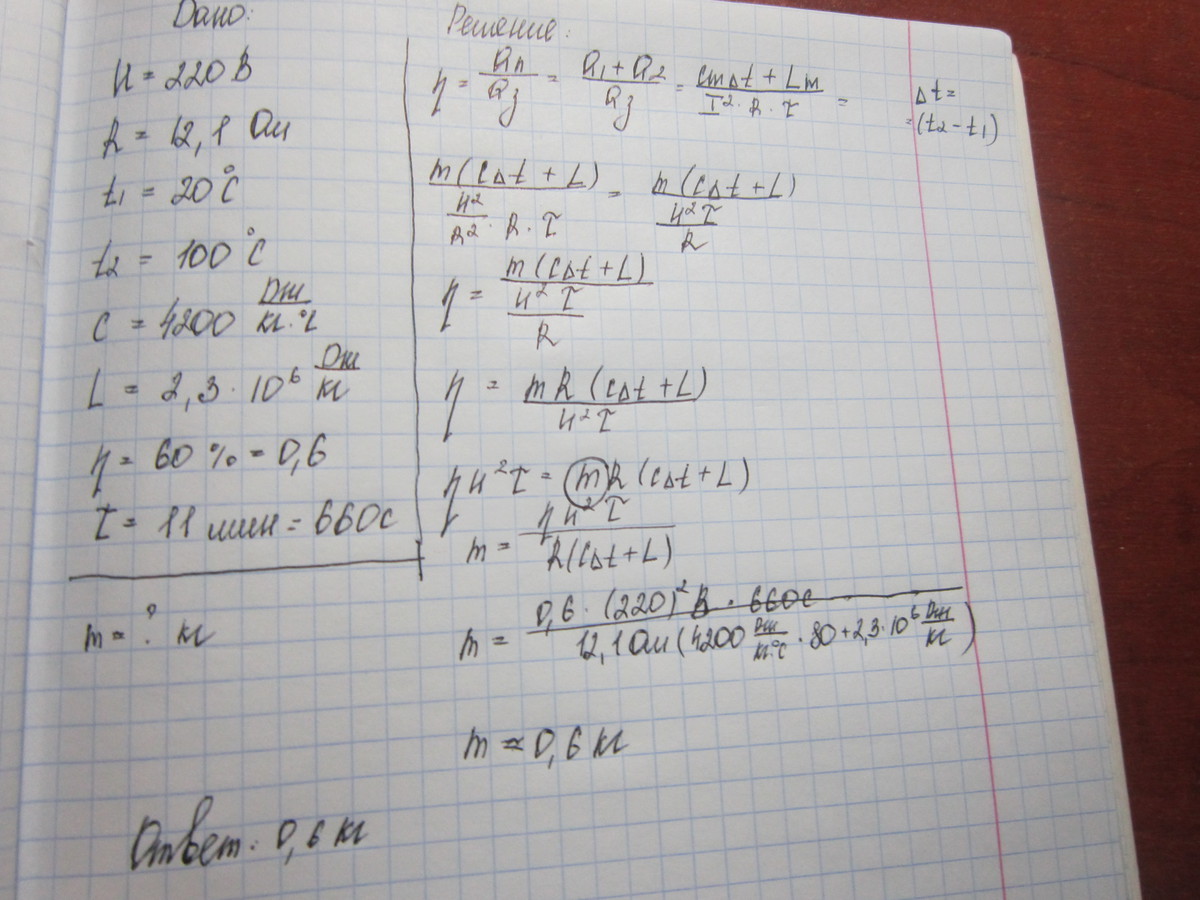 Дано:
U = 220 В
R = 12,1 Ом
t₁ = 20°C
t₂ = 100°C
c = 4200 Дж/кг·°C
L = 2,3 · 10⁶ Дж/кг
η = 60 % = 0,6
τ = 11 мин = 660с
m = ? кг
Решение:
η = Qп/Qз = (Q₁ + Q₂)/Qз = (cmΔt + Lm)/(I² · R · τ) =
Δt =
= (t₂ - t₁)
m(cΔt + L)/(U²/R² · R · τ) = m(cΔt + L)/(U²τ/R)
η = m(cΔt + L)/(U²τ/R)
η = mR(cΔt + L)/U²τ
ηU²τ = mR(cΔt + L)
m = ηU²τ/R(cΔt + L)
m = 0,6 · (220)² В · 660с/12,1 Ом (4200 Дж/кг°C · 80 + 2,3 · 10⁶ Дж/кг)
m ≈ 0,6 кг
Ответ: 0,6 кг